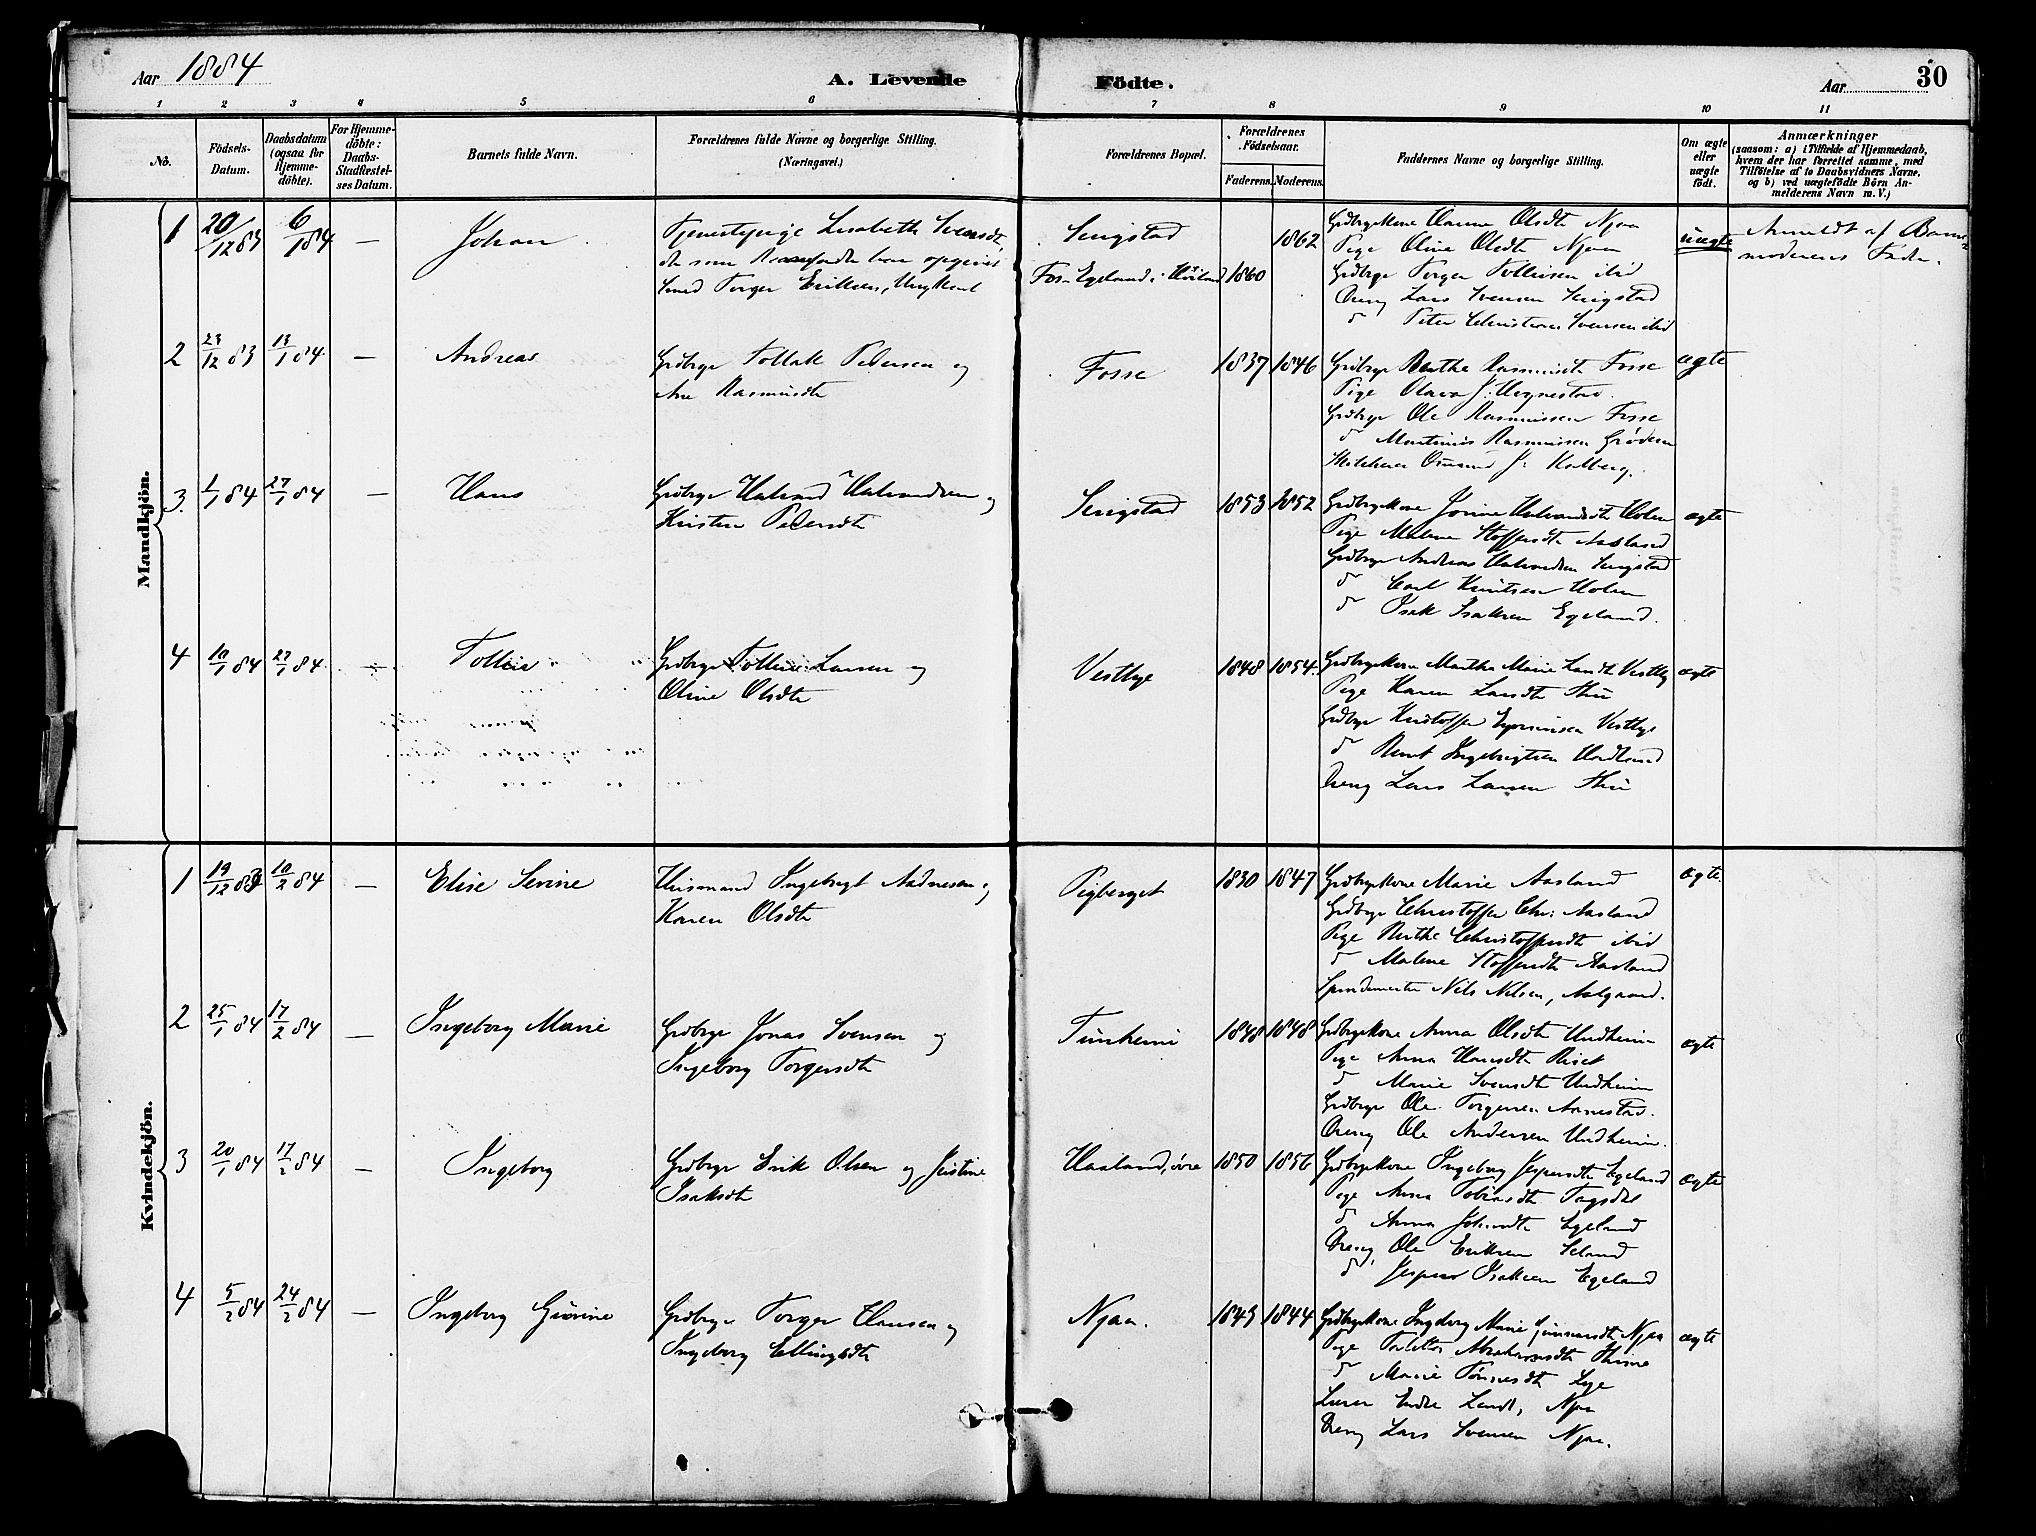 Aar 1884
A. Levende Födte.
Aar 30
1 2 3 4 5 6 7 8 9 10 11
No.
Födsels-Datum.
Daabsdatum (ogsaa for Hjemme-döbte).
For Hjemme-döbte: Daabs-Stadfæstel-ses Datum.
Barnets fulde Navn.
Forældrenes fulde Navne og borgerlige Stilling.
(Næringsvei.)
Forældrenes Bopæl.
Forældrenes Födselsaar.
Faderens. Moderens.
Faddernes Navne og borgerlige Stilling.
Om ægte eller uægte födt.
Anmærkninger
(saasom: a) i Tilfælde af Hjemmedaab,
hvem der har forrettet samme, med
Tilföielse af to Daabsvidners Navne,
og b) ved uægtefödte Börn An-
melderens Navn m. V.)
Mandkjön.
1 20/12 83 6/1 84 — Johan
Tjenestepige Lisabeth Svensdt,
der som Barnefader har opgivet
Torger Eriksen, Ungkarl
Serigstad 1862
Fos-Egeland i Høiland 1860
Grdbrgkone Hanne Olsdt Njaa
Pige Oline Olsdt Njaa
Grdbrgr Torger Tolleisen ibid
Dreng Lars Svensen Serigstad
do Peter Christian Svensen ibid
uægte
Anmeldt af Barne-
moderens Fader.
2 23/12 83 13/1 84 — Andreas
Grdbrgr Tollak Pedersen og
Ane Rasmusdt
Fosse 1837 1846
Grdbrgr Berthe Rasmusdt Fosse
Pige Olava J. Hognestad.
Grdbrgr Ole Rasmussen Fosse
do Martinius Rasmussen Grødem
J: Kalberg.
ægte
3. 1/1 84 27/1 84 — Hans
Grdbrgr Halvard Halvardsen og
Kirsten Pedersdt
Serigstad 1853 1852
Grdbrgkone Jorine Halvardsdt Holen
Pige Malene Stoffersdt Aasland
Grdbrgr Andreas Halvardsen Serigstad
do Carl Knutsen Holen
do Isak Isaksen Egeland.
ægte
4 10/1 84 27/1 84 — Tollein
Grdbrgr Tollein Larsen og
Oline Olsdt
Vestlye 1848 1854.
Grdbrgkone Martha Marie Larsdt Vestly
Pige Karen Larsdt Thu
Grdbrgr Kristoffer Vestlye
do Bernt Ingebrigtsen Hordland
Dreng Lars Larsen Thu
ægte
Kvindekjön.
1 19/12 83 10/2 84 — Elise Serine
Husmand Ingebrigt Aadnesen og
Karen Olsdt
Pigberget 1830 1847
Grdbrgkone Marie Aasland
Grdbrgr Christoffer Chr: Aasland
Pige Berthe Christoffersdt ibid
do Malene Stoffersdt Aasland
Spindemester Nils Nilsen, Aalgaard.
ægte.
2 25/1 84 17/2 84 — Ingeborg Marie
Grdbrgr Jonas Svensen og
Ingeborg Torgersdt
Tunheim 1848 1848
Grdbrgkone Anna Olsdt Undheim
Pige Anna Hansdt Riset
do Marie Svensdt Undheim
Grdbrgr Ole Torgersen Aanestad.
Dreng Ole Andersen Undheim.
ægte
3 20/1 84 17/2 84 — Ingeborg
Grdbrgr Erik Olsen og Jeistine
Isaksdt
Haaland, øvre 1850 1856
Grdbrgkone Ingeborg Jespersdt Egeland
Pige Anna Tobiasdt Tagsdal
do Anna Johansdt Egeland
Dreng Ole Eriksen Seland
do Jesper Isaksen Egeland
ægte
4 5/2 84 24/2 84 — Ingeborg Gurine
Grdbrgr Torger Hansen og
Ingeborg Ellingsdt
Njaa. 1843 1844
Grdbrgkone Ingeborg Marie Gunnarsdt Njaa
Pige Abrahamsdt Thime
do Marie Tønnesdt Lye
Lærer Endre Njaa
Dreng Lars Svensen Njaa.
ægte